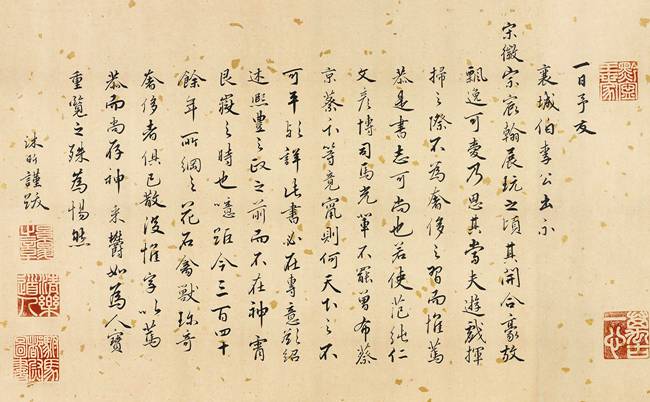 一日予友
襄城伯李公出示
宋徽宗宸翰展玩之頃其開合豪放
飄逸可愛乃思其當夫遊戲揮
掃之際不為奢侈之習而惟篤
恭是書志可尚也若使范純仁
文彥博司馬光輩不罷曾布蔡
京蔡卞等竟竄則何天下之不
可平歟詳此書必在專意紹
述熙豐之政之前而不在神霄
艮嶽之時也噫距今三百四十
餘年所綱之花石禽獸珍奇
奢侈者俱已散沒惟字以篤
恭而尚存神采鬱如為人寶
重覽之殊為惕然
沐昕謹跋